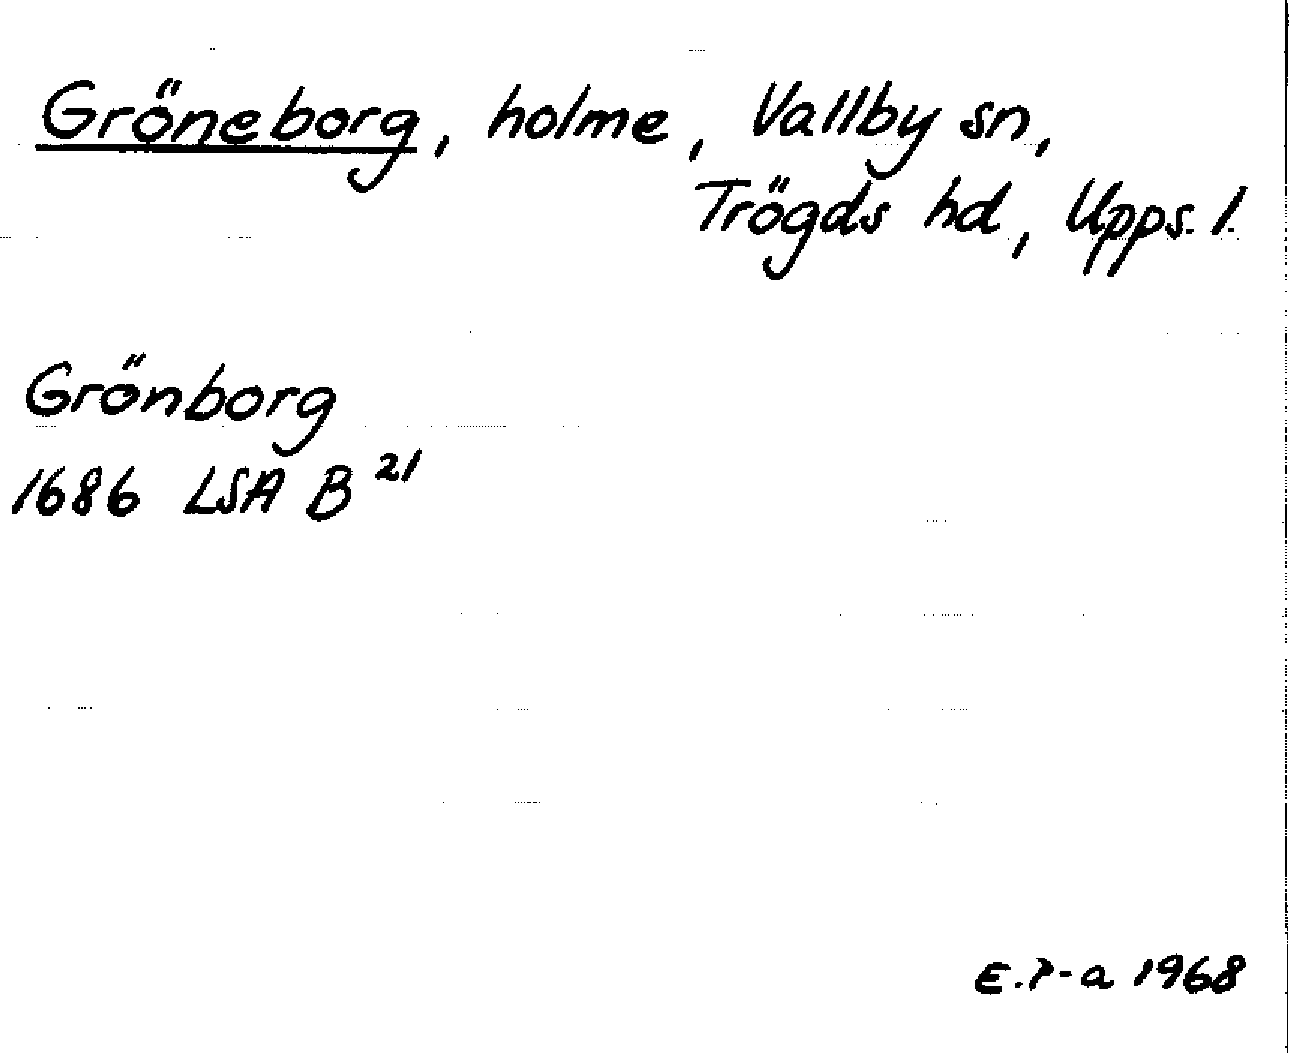 Gröneborg, holme, Vallby sn,
Trögds hd, Upps. l.
Grönborg
1686 LSA B 21
E.P-a 1968